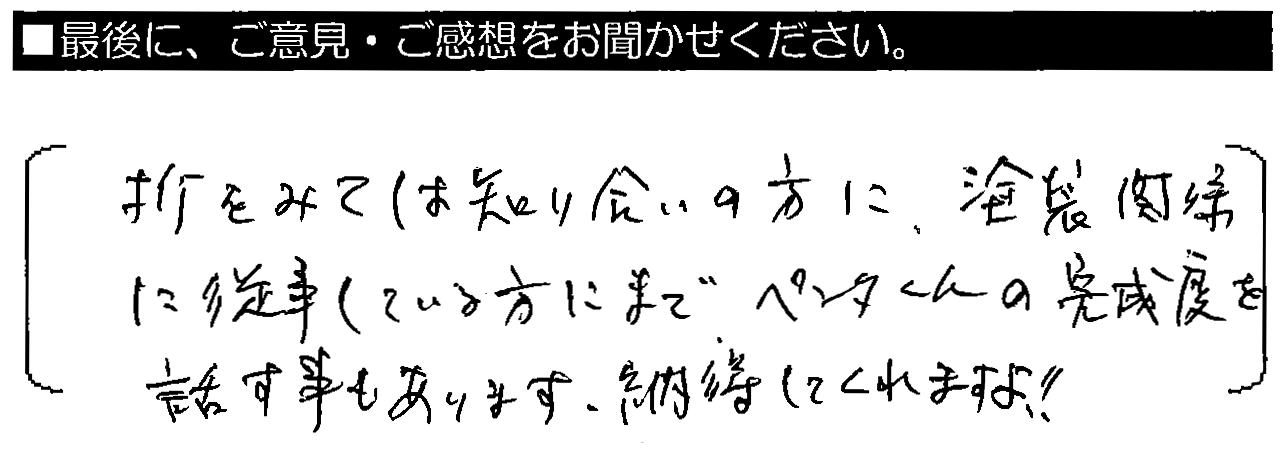 ■最後に、ご意見・ご感想をお聞かせください。
折をみては知り合いの方に、塗装関係
に従事している方にまでペンタくんの完成度を
話す事もあります、納得してくれますよ!!